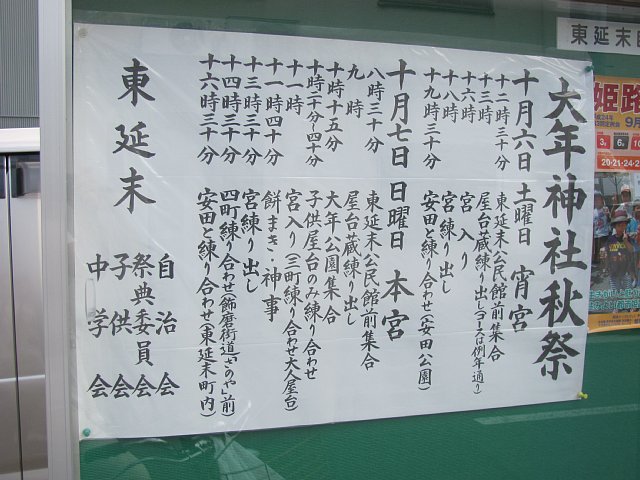 大年神社秋祭
十月六日 土曜日 宵宮
十二時三十分 東延末公民館前集合
十三時 屋台蔵練り出し(コースは例年通り)
十六時 宮入り
十八時 宮練り出し
十九時三十分 安田と練り合わせ(安田公園)
十月七日 日曜日 本宮
八時三十分 東延末公民館前集合
九時 屋台蔵練り出し
十時十五分 大年公園集合
十時二十分〜四十分 子供屋台のみ練り合わせ
十一時 宮入り(三町練り合わせ大人屋台)
十一時四十分 餅まき・神事
十三時三十分 宮練り出し
十四時三十分 四町練り合わせ(飾磨街道「かのや」前)
十六時三十分 安田と練り合わせ(東延末町内)
東延末
自治会
祭典委員会
子供会
中学会
東延末自
姫路
9月